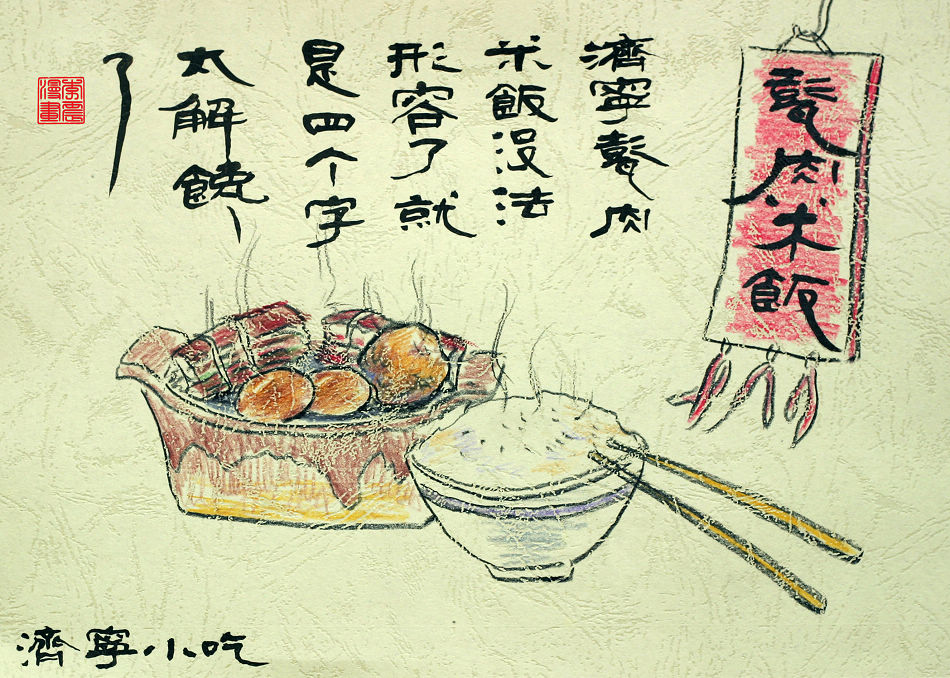 甏肉米飯
濟寧甏肉
米飯没法
形容了就
是四个字
太解饞
了
漫畫
濟寧小吃